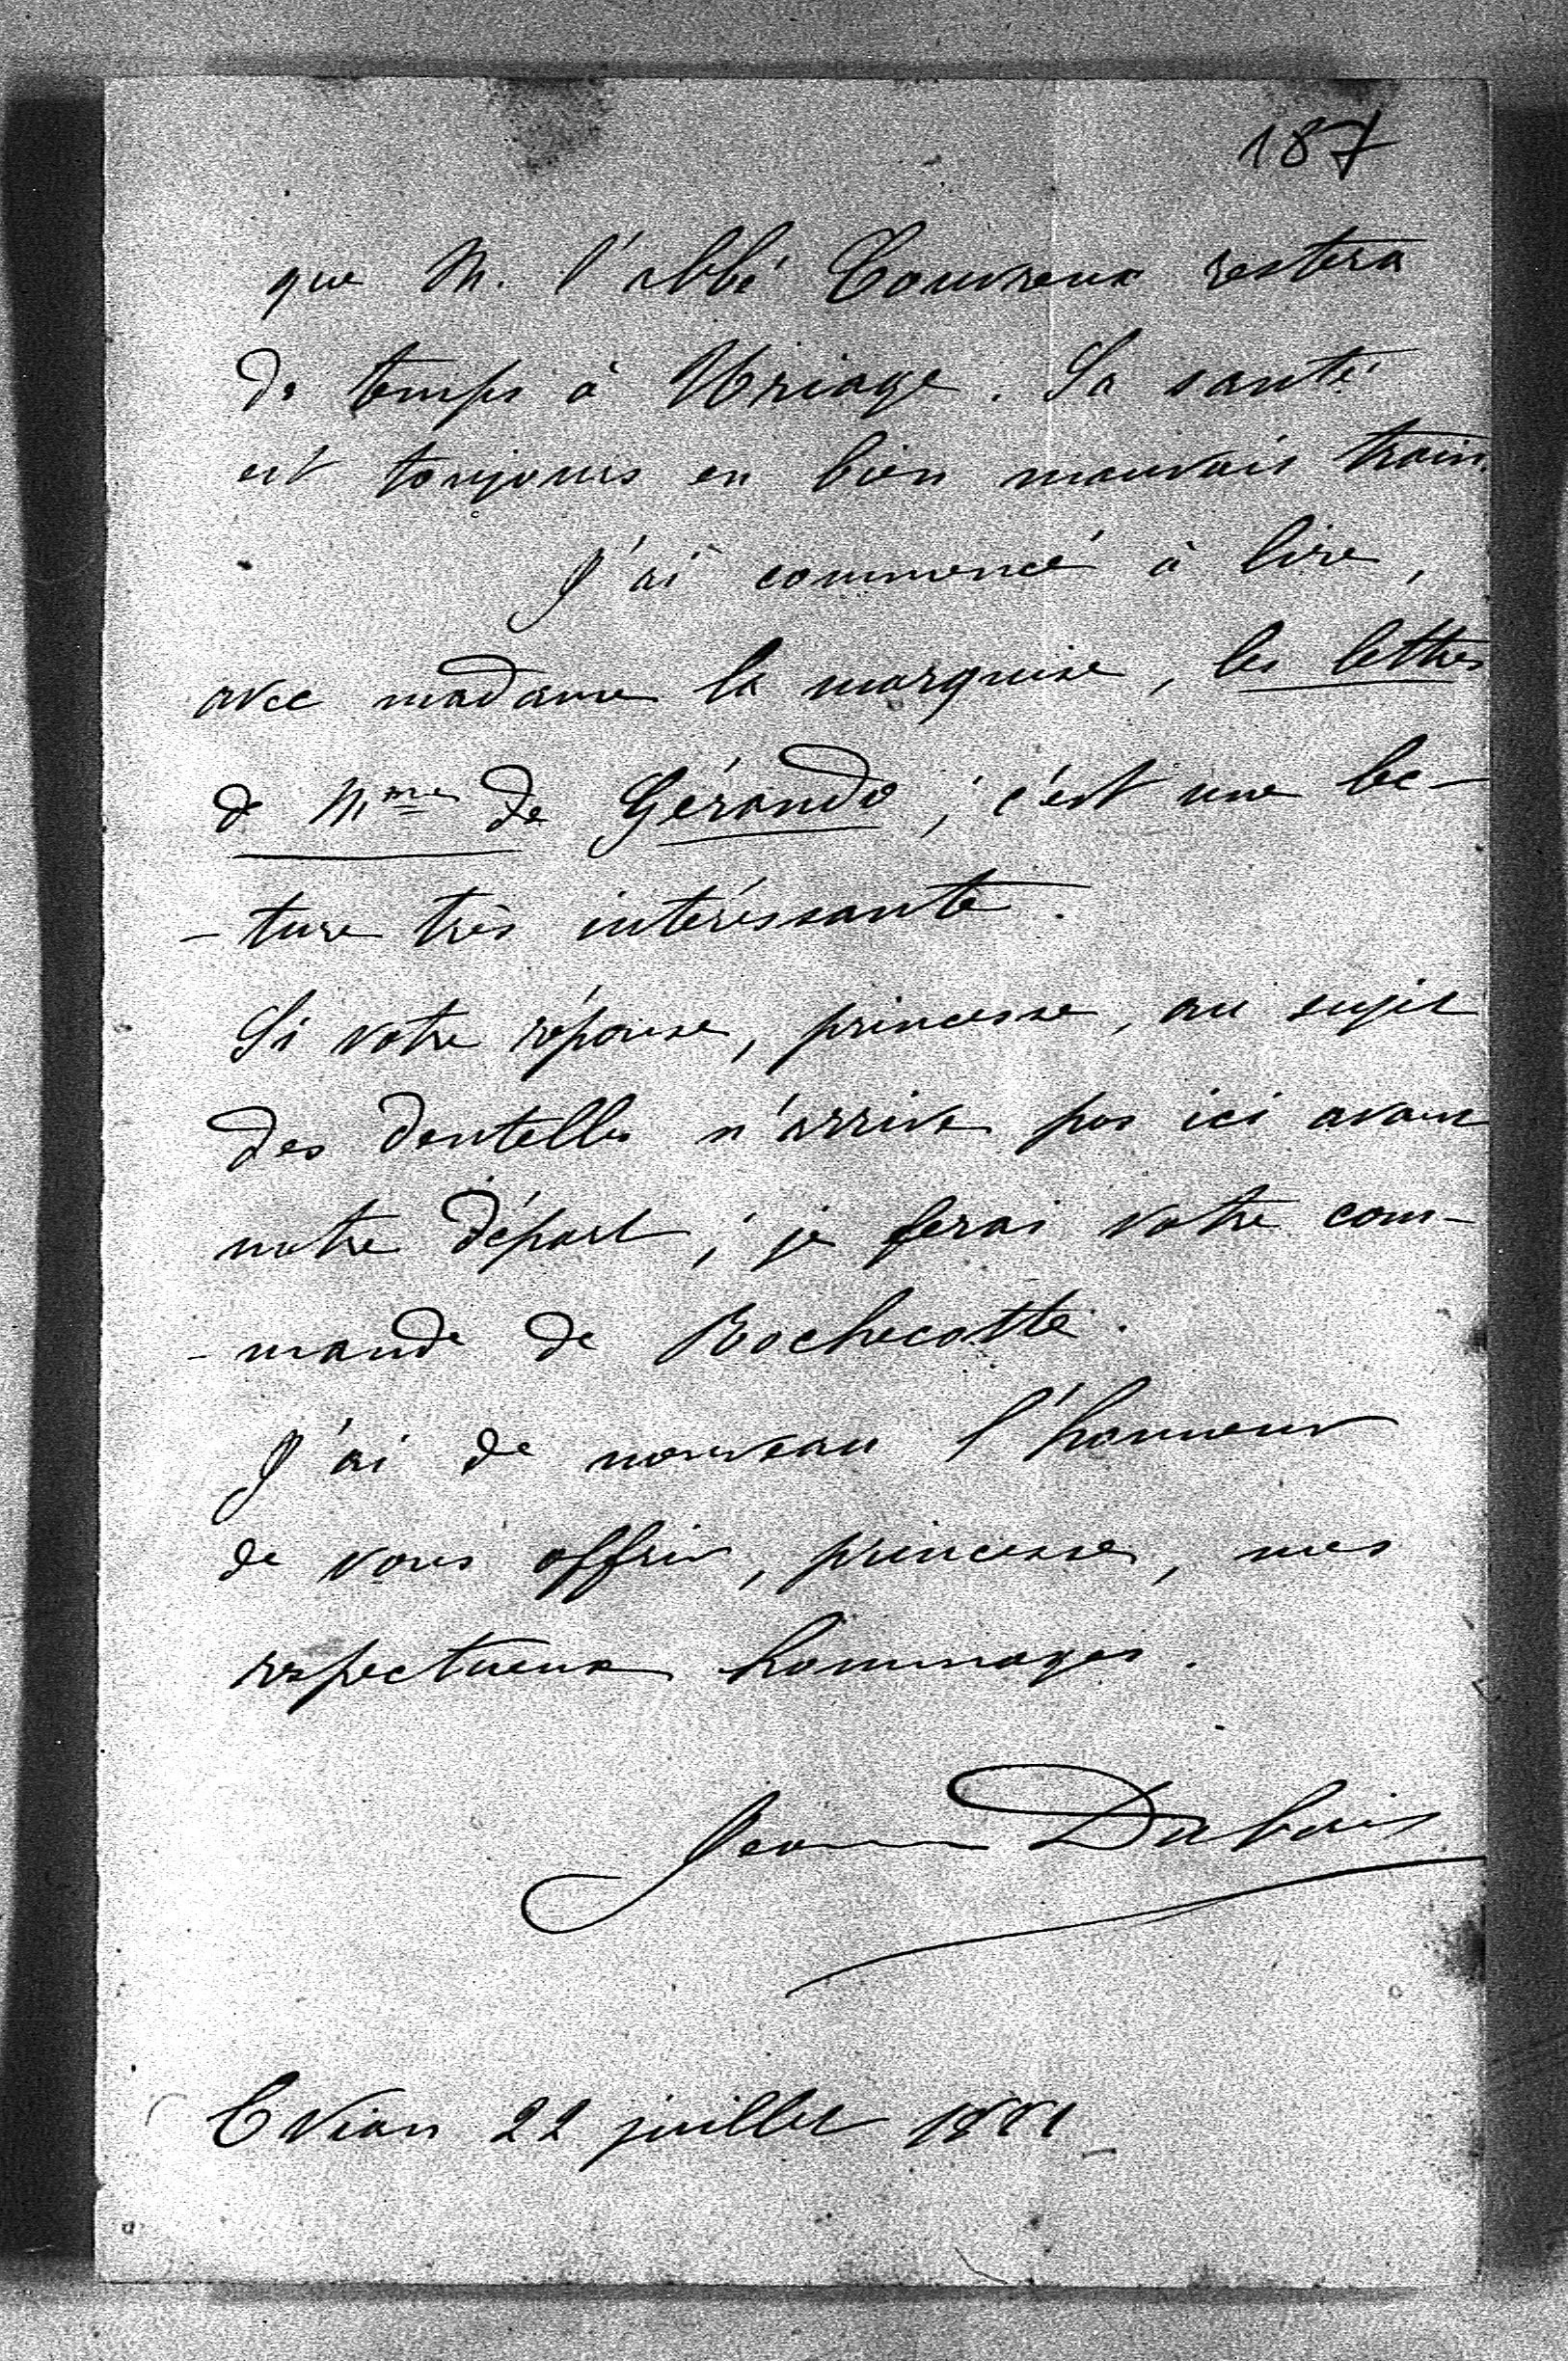 187
que M. l'abbé Couvreux restera
de temps à Uriage. Sa santé
est toujours en bien mauvais train.
J'ai commencé à lire,
avec madame la marquise, les lettres
de Mme de Gérando ; c'est une lec-
-ture très intéressante.
Si votre réponse, princesse, au sujet
des dentelles n'arrive pas ici avant
notre départ ; je ferai votre com-
-mande de Rochecotte.
J'ai de nouveau l'honneur
de vous offrir, princesse, mes
respectueux hommages.
Jeanne Dubois
Evian 22 juillet 1881